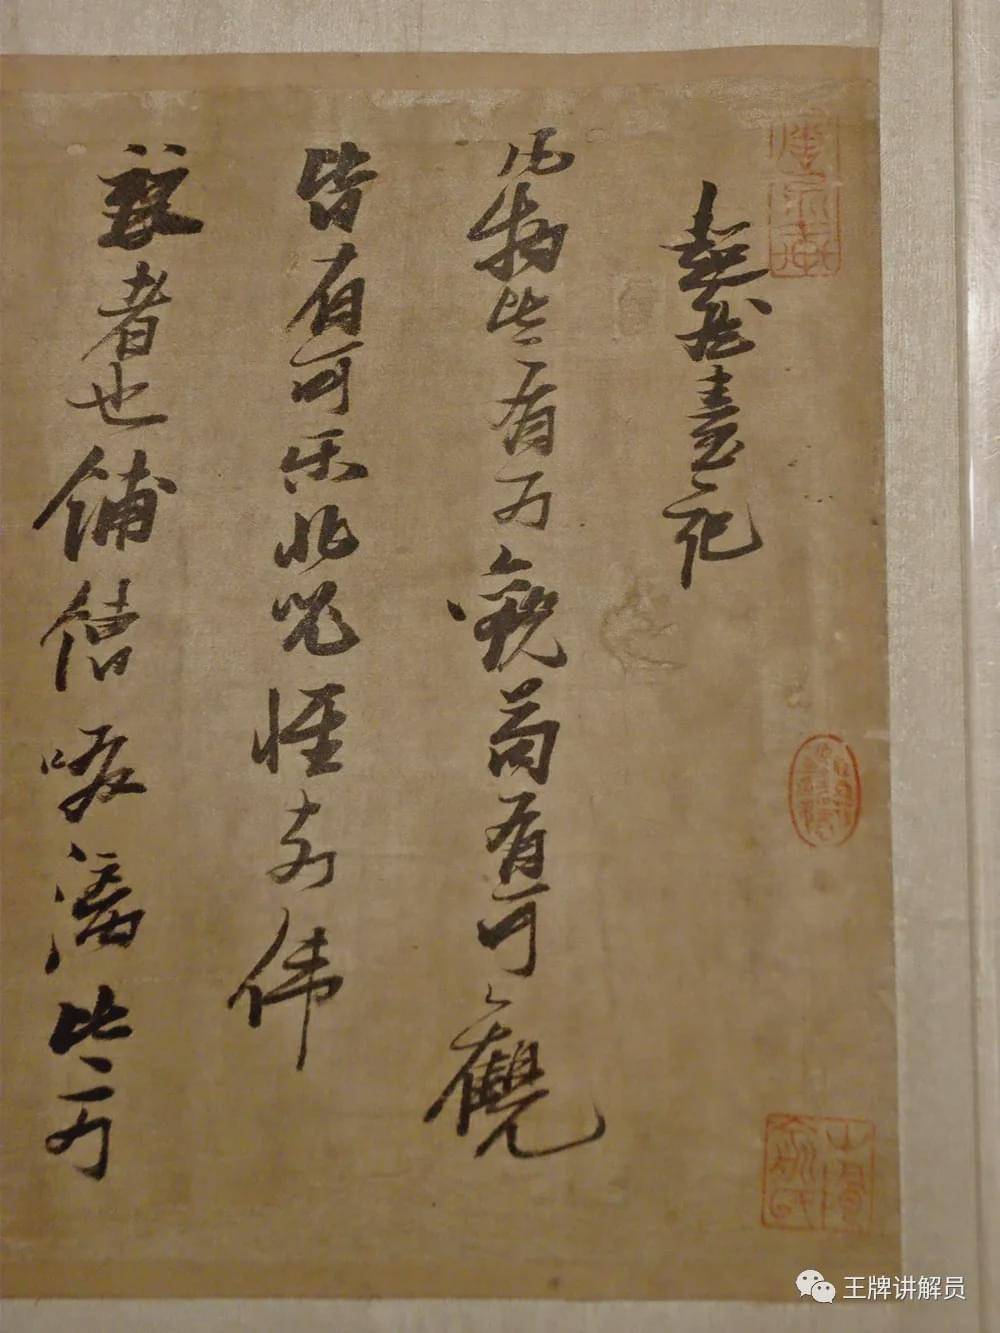 超然臺記
凡物皆有可觀苟有可觀
皆有可樂非必怪奇偉
麗者也餔糟啜漓皆可
王牌讲解员